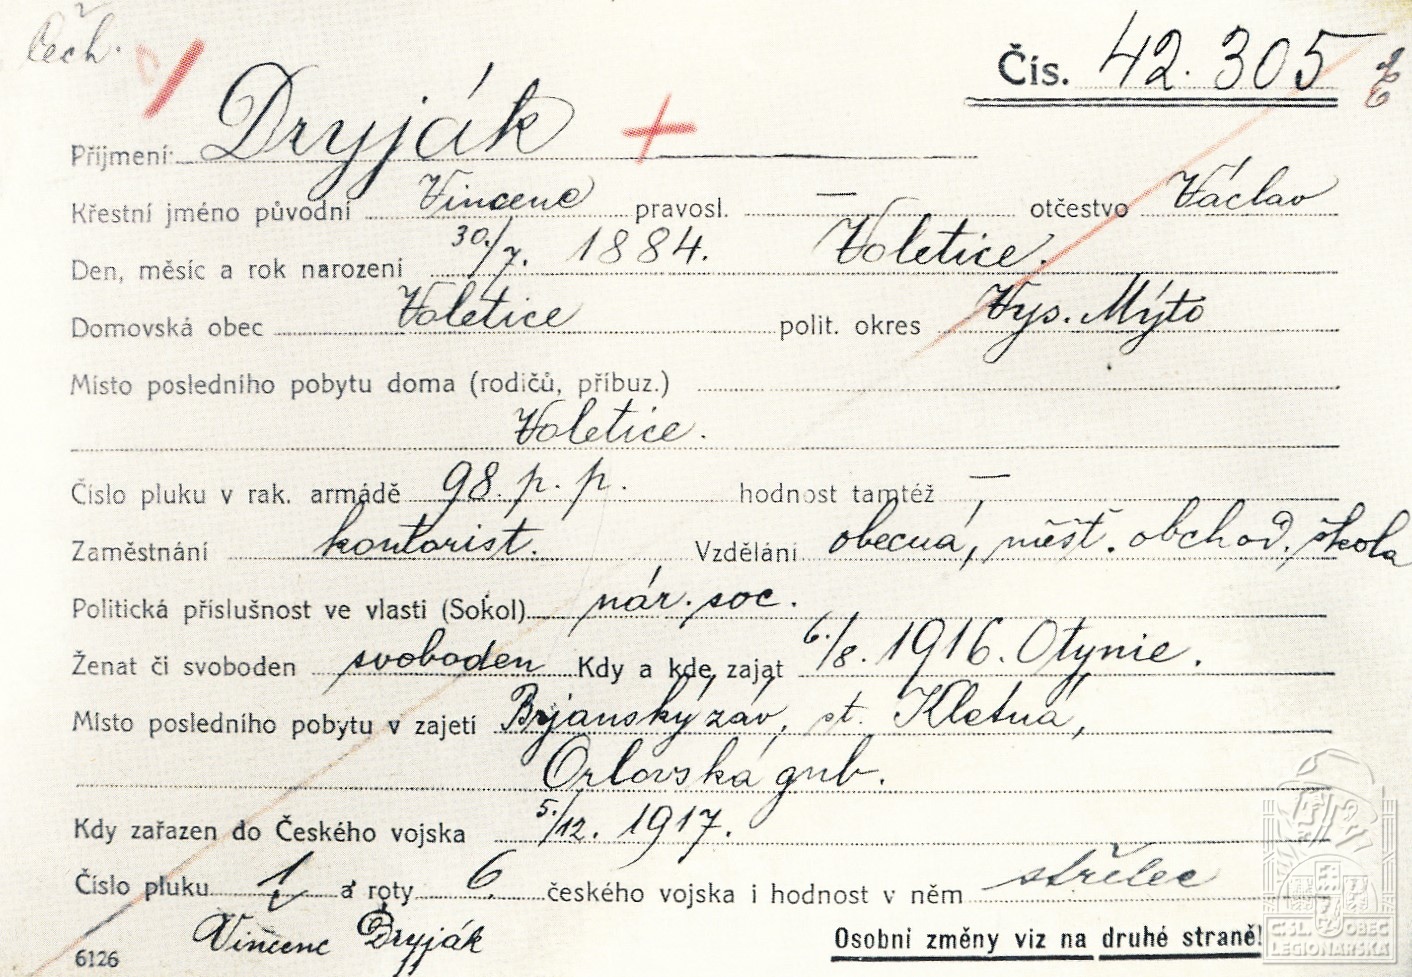 Čech.
Čís. 42.305
Příjmení: Dryják
Křestní jméno původní Vincenc pravosl. — otčestvo Václav
Den, měsíc a rok narození 30./7. 1884. Voletice.
Domovská obec Voletice polit. okres Vys. Mýto
Místo posledního pobytu doma (rodičů, příbuz.)
Voletice.
Číslo pluku v rak. armádě 98. p. p. hodnost tamtéž —
Zaměstnání kontorist. Vzdělání obecná, měšť. obchod. škola
Politická příslušnost ve vlasti (Sokol) nár. soc.
Ženat či svoboden svoboden Kdy a kde zajat 6./8. 1916. Otynie.
Místo posledního pobytu v zajetí Brjanský záv, st. Kletná,
Orlovská gub.
Kdy zařazen do Českého vojska 5./12. 1917.
Číslo pluku 1 a roty 6. českého vojska i hodnost v něm střelec
Vincenc Dryják
6126 Osobní změny viz na druhé straně!
ČSL. OBEC
LEGIONÁŘSKÁ